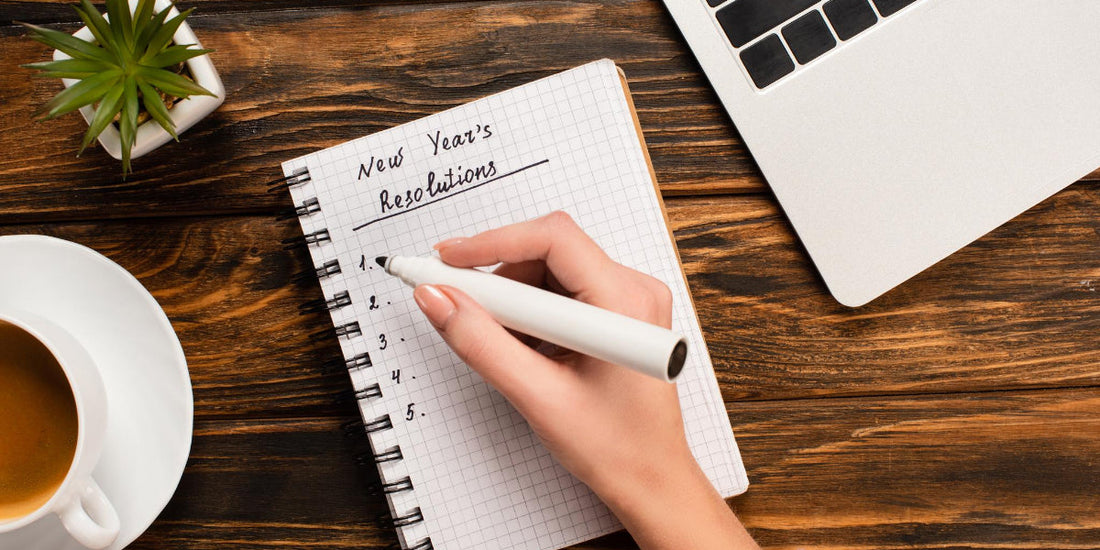 New Year's
Resolutions
1.
2.
3.
4.
5.